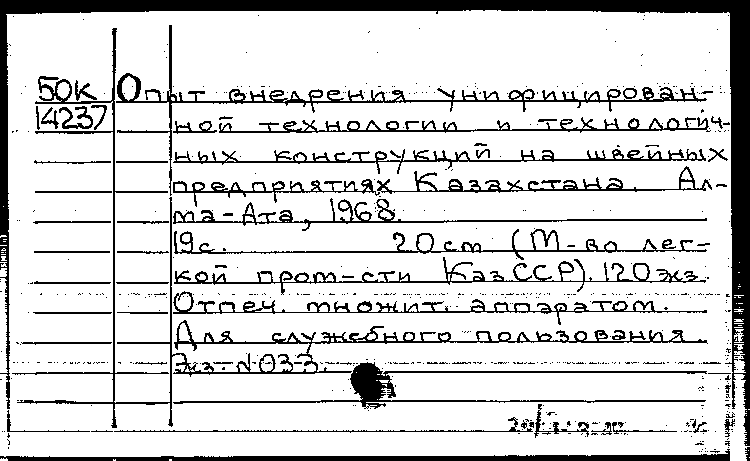 50К Опыт внедрения унифицирован-
14237 ной технологии и технологич-
ных конструкций на швейных
предприятиях Казахстана. Ал-
ма-Ата, 1968.
19с. 20см (М-во лег-
кой пром-сти КазССР). 120экз.
Отпеч. множит. аппаратом.
Для служебного пользования.
Экз. №033.